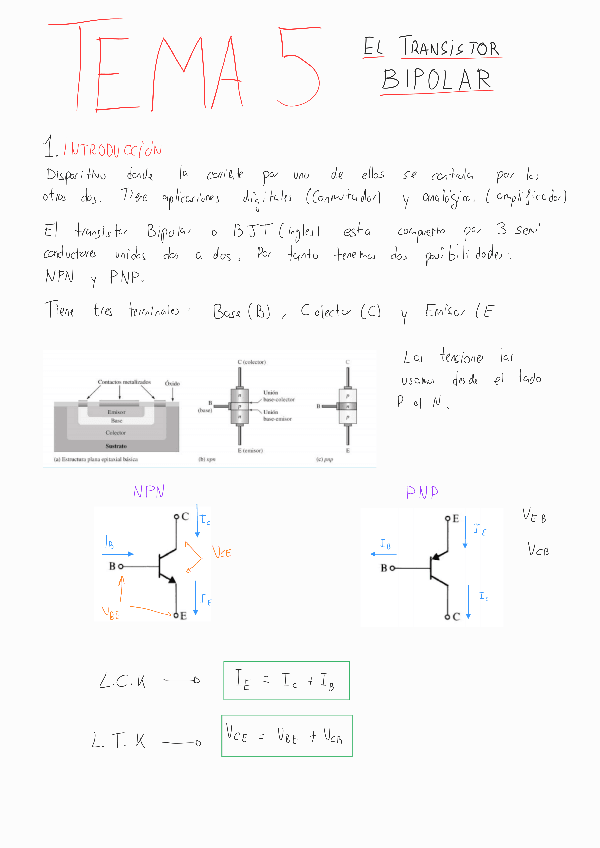 TEMA 5
EL TRANSISTOR
BIPOLAR
1. INTRODUCCIÓN
Dispositivo donde la corriente por uno de ellos se controla por los
otros dos. Tiene aplicaciones digitales (Conmutador) y analógica. (amplificador)
El transistor Bipolar o BJT (ingles) esta compuesto por 3 semi
conductores unidos dos a dos. Por tanto tenemos dos posibilidades:
NPN y PNP.
Tiene tres terminales: Base (B), Colector (C) y Emisor (E
Las tensiones las
usamos desde el lado
P al N.
Contactos metalizados
Óxido
Emisor
Base
Colector
Sustrato
(a) Estructura plana epitaxial básica
C (colector)
n
p
n
B
(base)
Unión
base-colector
Unión
base-emisor
E (emisor)
(b) npn
C
p
n
p
B
E
(c) pnp
NPN
C
I_C
I_B
B
V_CE
I_E
V_BE
E
PNP
E
I_E
I_B
B
I_C
C
V_EB
V_CB
L.C.K → I_E = I_C + I_B
L.T.K → V_CE = V_BE + V_CB